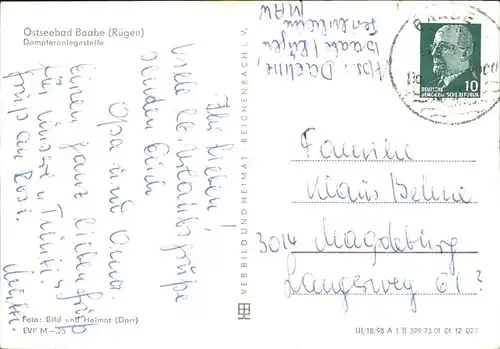 Ostseebad Baabe (Rügen)
Dampferanlegestelle
Ihr Lieben!
Viele Urlaubsgrüße
senden Euch
Opa und Oma.
Einen ganz lieben
für unsere
an Rosi.
Mutti.
VEB BILD UND HEIMAT, REICHENBACH I. V.
Abs.
Baabe / Rügen
Ferienheim
MAW
BAABE
10
DEUTSCHE
DEMOKRATISCHE REPUBLIK
Familie
Klaus Behne
3014 Magdeburg
Langerweg 61
Foto: Bild und Heimat (Darr)
EVP M -,25
III/18/98 A 1 B 399/73 01 01 12 027